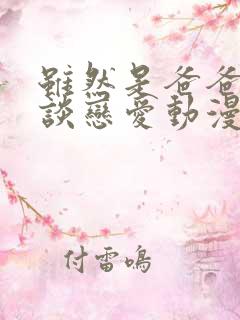 雖然是爸爸
談戀愛動漫
付雷鳴